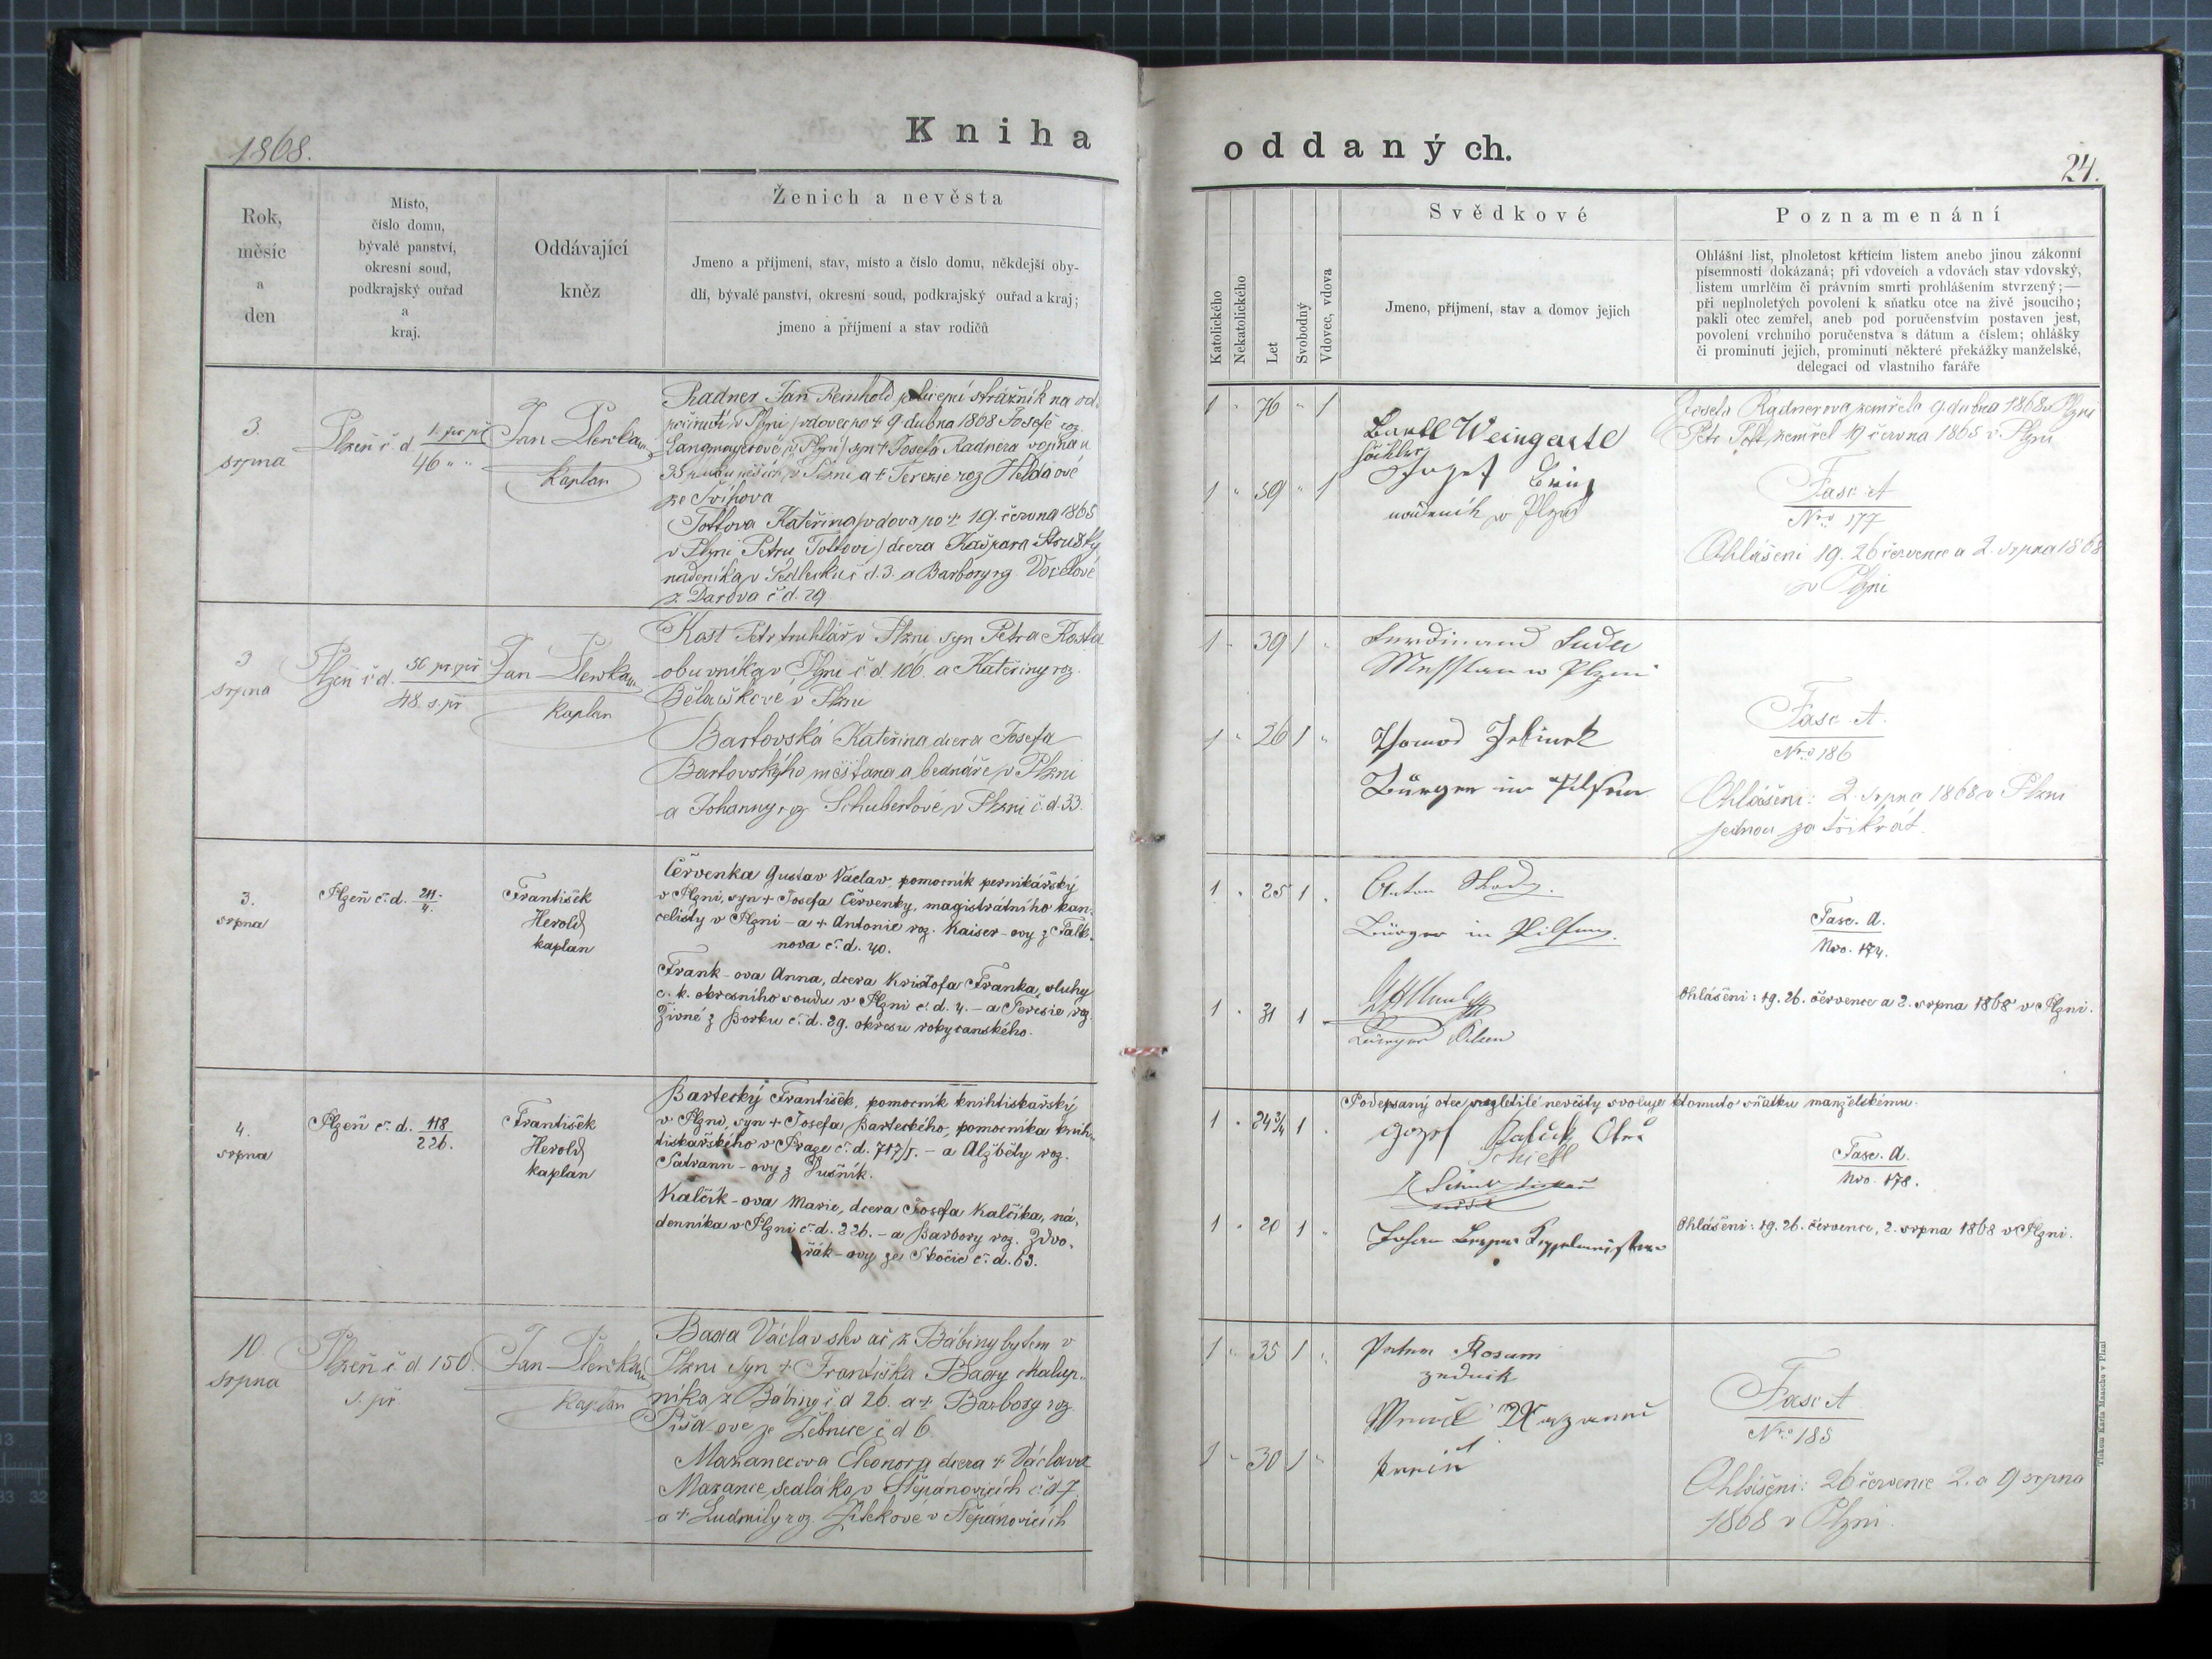 1868.
Kniha oddaných.
24.
Rok, měsíc a den
Místo, číslo domu, bývalé panství, okresní soud, podkrajský ouřad a kraj.
Oddávající kněz
Ženich a nevěsta
Jmeno a příjmení, stav, místo a číslo domu, někdejší oby-
dlí, bývalé panství, okresní soud, podkrajský ouřad a kraj;
jmeno a příjmení a stav rodičů
Katolického
Nekatolického
Let
Svobodný
Vdovec, vdova
Svědkové
Jmeno, příjmení, stav a domov jejich
Poznamenání
Ohlášní list, plnoletost křtícím listem anebo jinou zákonní
písemností dokázaná; při vdovcích a vdovách stav vdovský,
listem umrlčím či právním smrti prohlášením stvrzený;—
při neplnoletých povolení k sňatku otce na živě jsoucího;
pakli otec zemřel, aneb pod poručenstvím postaven jest,
povolení vrchního poručenstva s dátum a číslem; ohlášky
či prominutí jejich, prominutí některé překážky manželské,
delegací od vlastního faráře
3.
srpna
Plzeň č. d. 1. pr. př.
46 " "
Jan
kaplan
Radner Jan Reinhold policejní strážník na od-
počinutí v Plzni (vdovec po + 9 dubna 1868 Josefě roz.
Langmayerové v Plzni) syn + Josefa Radnera vojína u
35 pluku pěších v Plzni a + Terezie roz
ze Švihova
Tottova Kateřina (vdova po + 19. června 1865
v Plzni Petru Tottovi) dcera Kašpara
nádeníka v Sedlecku č d. 3. a Barbory rz.
z Darova č d. 29
1 " 76 " 1
1 " 59 " 1
Weingartl
Josef
nádeník v Plzni
Josefa Radnerova zemřela 9. dubna 1868 v Plzni
Petr Tott zemřel 19 června 1865 v Plzni
Fasc A
Nro 177
Ohlášeni 19. 26 července a 2. srpna 1868
v Plzni
3
srpna
Plzeň č d. 56 pr. př
48. s. př
Jan
kaplan
Kast Petr truhlář v Plzni syn Petra Kasta
obuvníka v Plzni č d 106. a Kateřiny roz.
v Plzni
Bartovská Kateřina dcera Josefa
Bartovského měšťana a bednáře v Plzni
a Johanny rz. Schubertové v Plzni č. d. 33.
1 " 39 1 "
1 " 26 1 "
Ferdinand
w Plzni
Bürger in Pilsen
Fasc A.
Nro 186
Ohlášeni: 2. srpna 1868 v Plzni
jednou za třikrát.
3.
srpna
Plzeň č. d. 211.
4.
František
Herold
kaplan
Červenka Gustav Václav, pomocník pernikářský
v Plzni, syn + Josefa Červenky, magistrátního kan-
celisty v Plzni – a + Antonie roz. Kaiser-ovy z Falk-
nova č. d. 40.
Frank-ova Anna, dcera Kristofa Franka, sluhy
c. k. okresního soudu v Plzni č. d. 4. – a Teresie roz.
Živné z Borku č. d. 29. okresu rokycanského.
1 " 25 1 "
1 " 31 1
Anton
Bürger in Pilsen.
Bürger Pilsen
Fasc. A.
Nro. 174.
Ohlášeni: 19. 26. července a 2. srpna 1868 v Plzni.
4.
srpna
Plzeň č. d. 118
226.
František
Herold
kaplan
Bartecký František, pomocník knihtiskařský
v Plzni, syn + Josefa Barteckého, pomocníka knih-
tiskařského v Praze č. d. 717/I. – a Alžběty roz.
Satrann-ovy z Dušník.
Kalčík-ova Marie, dcera Josefa Kalčíka, ná-
denníka v Plzni č. d. 226. – a Barbory roz. Zdvo-
řák-ovy ze Skočic č. d. 63.
1 " 24¾ 1 "
1 " 20 1 "
Podepsaný otec nezletilé nevěsty svoluje k tomuto sňatku manželskému.
Schiebl
Johan
Fasc. A.
Nro. 178.
Ohlášeni: 19. 26. července, 2. srpna 1868 v Plzni.
10.
srpna
Plzeň č. d 150.
s. př.
Jan
kaplan
Baxa Václav slevač z Bábiny bytem v
Plzni syn + Františka Baxy chalup-
níka z Bábiny č. d 26. a + Barbory roz.
Píša-ove ze Žebnice č d 6
Mazancova Eleonora dcera + Václava
Mazance sedláka v Štěpánovicích č. d 7
a + Ludmily roz. Žitekové v Štěpánovicích
1 " 35 1 "
1 " 30 1 "
Rosum
zednik
Fasc A
Nro 185
Ohlášeni: 26 července 2. a 9 srpna
1868 v Plzni.
Tiskem Karla Maascha v Plzni